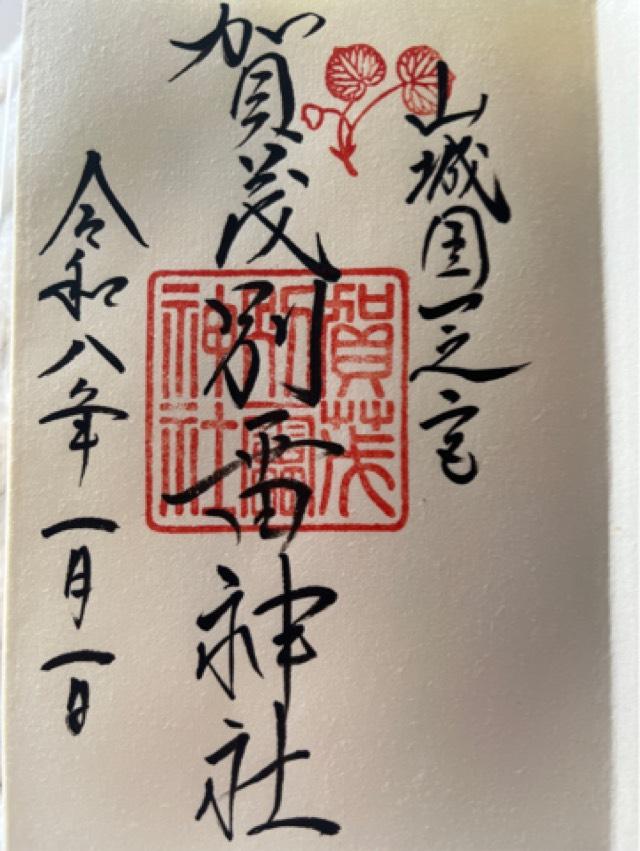 山城国一之宮
賀茂別雷神社
令和八年一月一日
賀茂
別雷
神社